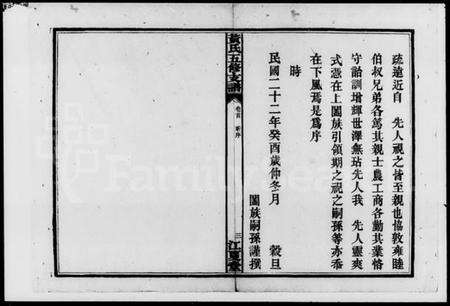 疏遠近自　先人視之皆至親也恊敦雍睦
伯叔兄弟各篤其親士農工商各勤其業恪
守詒訓增輝世澤無玷先人我　先人靈爽
式憑在上闔族引領期之視之嗣孫等亦忝
在下風焉是爲序
時
民國二十二年癸酉歲仲冬月　穀旦
闔族嗣孫謹撰
黃氏五修支譜
卷首　新序
三
江夏堂
FamilySearch